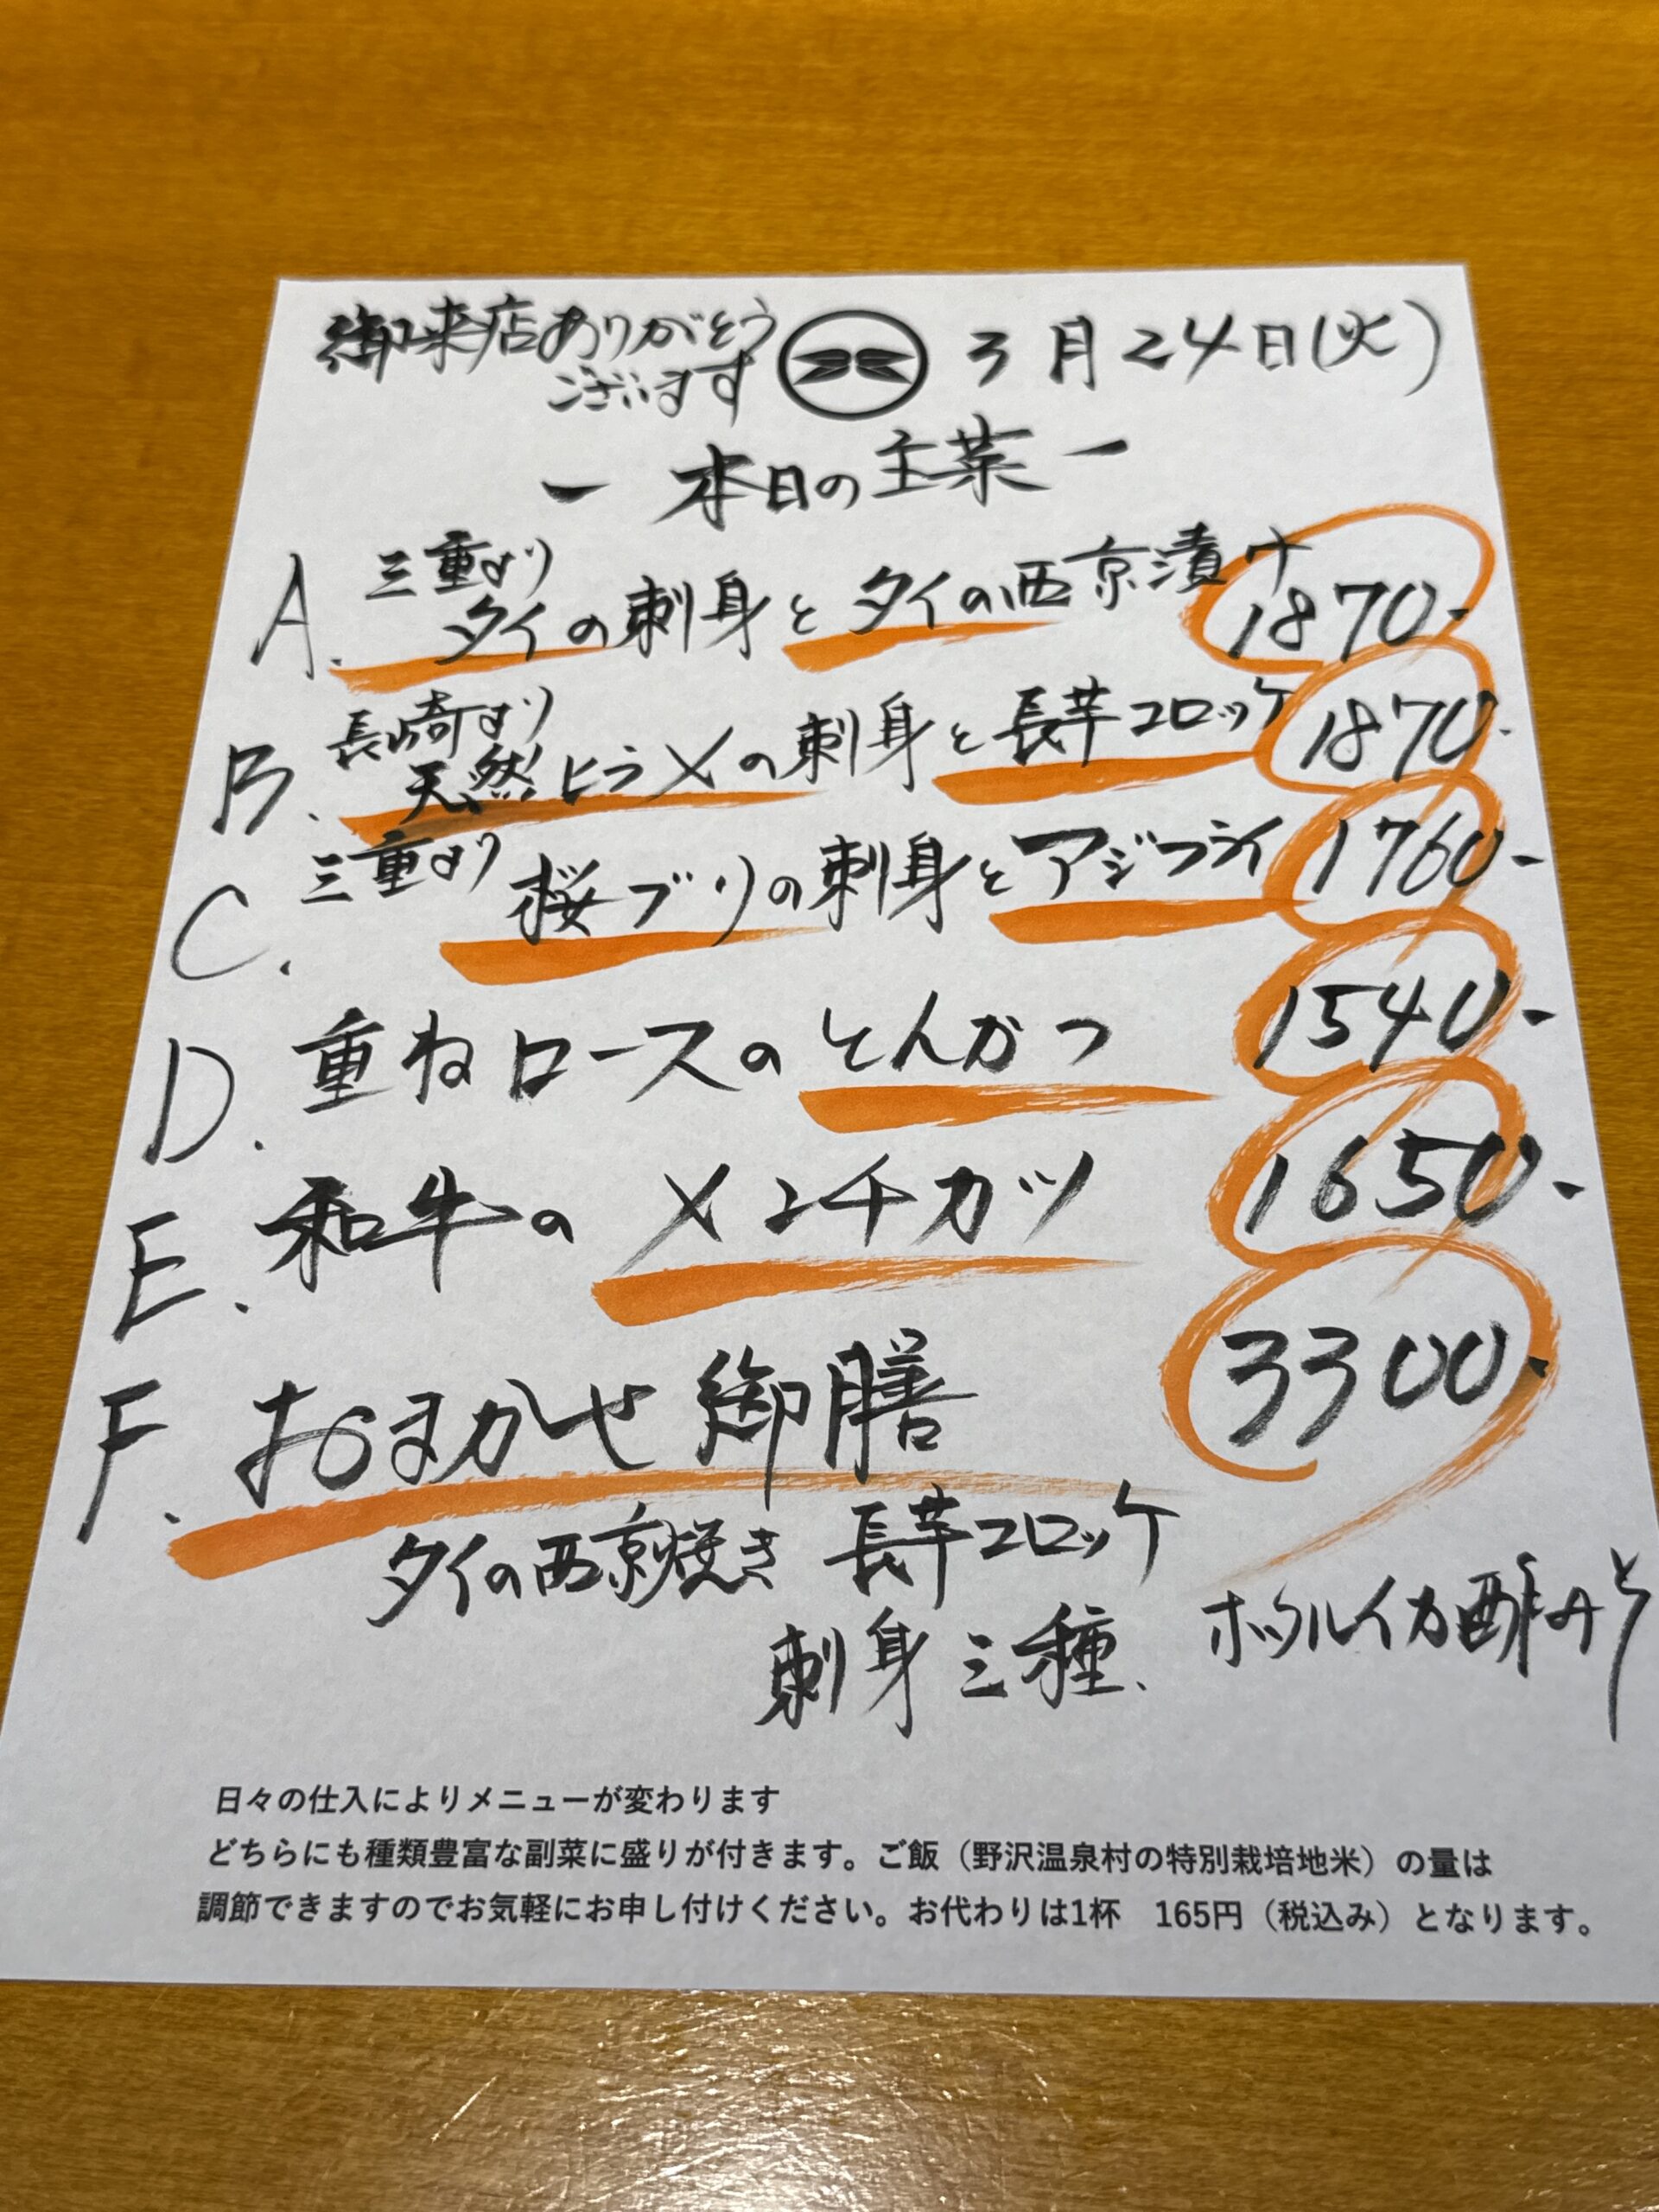 御来店ありがとう
ございます
3月24日(火)
ー 本日の主菜 ー
A. 三重より
タイの刺身とタイの西京漬け 1870-
B. 長崎より
天然ヒラメの刺身と長芋コロッケ 1870-
C. 三重より
桜ブリの刺身とアジフライ 1760-
D. 重ねロースのとんかつ 1540-
E. 和牛のメンチカツ 1650-
F. おまかせ御膳 3300-
タイの西京焼き 長芋コロッケ
刺身三種、ホタルイカ酢みそ
日々の仕入によりメニューが変わります
どちらにも種類豊富な副菜に盛りが付きます。ご飯（野沢温泉村の特別栽培地米）の量は
調節できますのでお気軽にお申し付けください。お代わりは1杯　165円（税込み）となります。